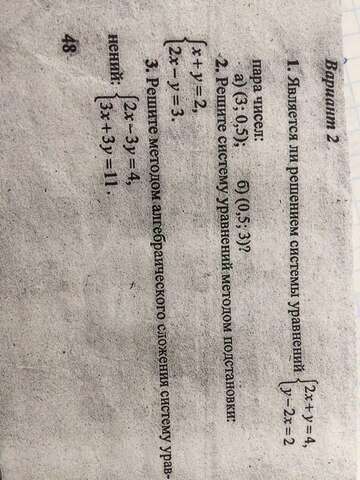 Вариант 2
1. Является ли решением системы уравнений { 2x + y = 4,
y – 2x = 2
пара чисел:
а) (3; 0,5); б) (0,5; 3)?
2. Решите систему уравнений методом подстановки:
{ x + y = 2,
2x – y = 3.
3. Решите методом алгебраического сложения систему урав-
нений: { 2x – 3y = 4,
3x + 3y = 11.
48